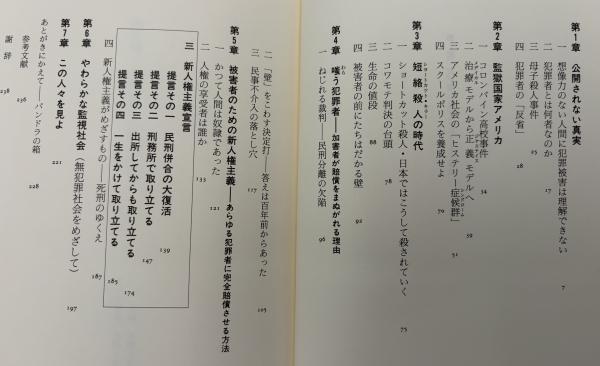 第1章 公開されない真実
一 想像力のない人間に犯罪被害は理解できない 7
二 犯罪者とは何者なのか 17
三 母子殺人事件 25
四 犯罪者の「反省」 28
第2章 監獄国家アメリカ
一 コロンバイン高校事件 34
二 治療モデルから正義モデルへ 39
三 アメリカ社会の「ヒステリー症候群」 51
四 スクールポリスを養成せよ 70
第3章 短絡殺人の時代
一 ショートカット殺人・日本ではこうして殺されていく 75
二 コワモテ判決の台頭 78
三 生命の値段 88
四 被害者の前にたちはだかる壁 92
第4章 嗤う犯罪者──加害者が賠償をまぬがれる理由
一 ねじれる裁判──民刑分離の欠陥 96
二 「壁」をこわす決定打──答えは百年前からあった 105
三 民事不介入の落とし穴 117
第5章 被害者のための新人権主義──あらゆる犯罪者に完全賠償させる方法
一 かつて人間は奴隷であった 121
二 人権の享受者は誰か 133
三 新人権主義宣言
提言その一 民刑併合の大復活 139
提言その二 刑務所で取り立てる 147
提言その三 出所してからも取り立てる 174
提言その四 一生をかけて取り立てる 185
四 新人権主義がめざすもの──死刑のゆくえ 187
第6章 やわらかな監視社会（無犯罪社会をめざして） 197
第7章 この人々を見よ 221
あとがきにかえて──パンドラの箱 228
参考文献 236
謝辞 238